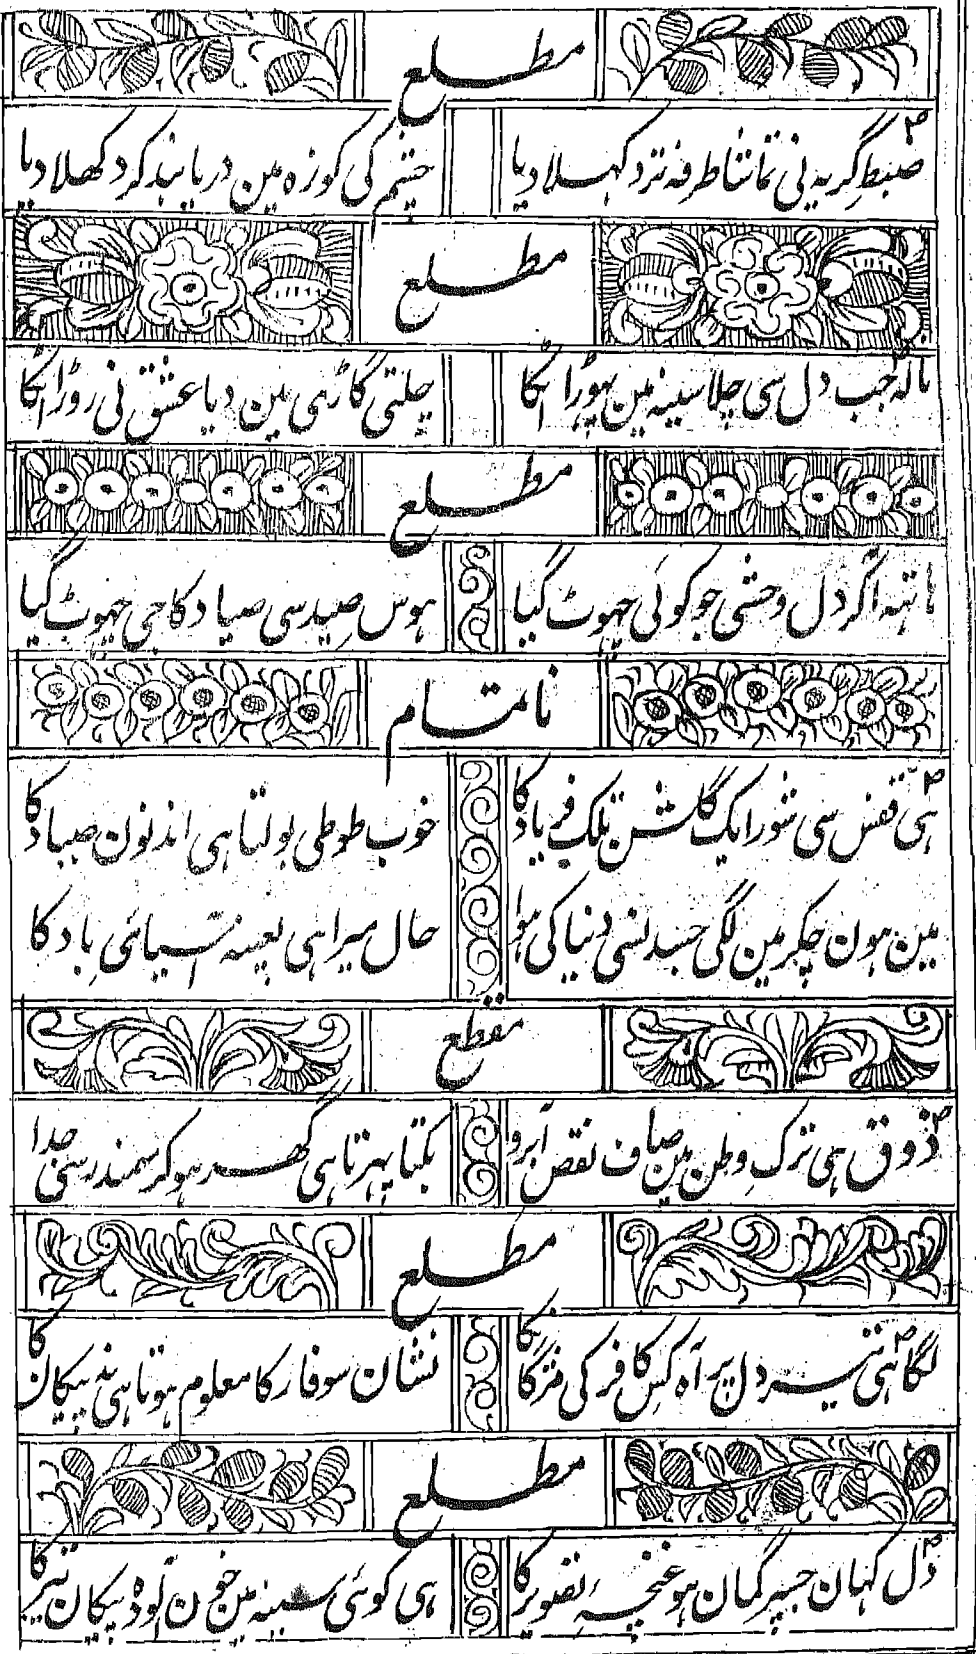 مطلع
ضبطِ گریہ نی تماشا طرفہ تر دکہلا دیا چشم کی کوزہ مین دریا بند کر دکھلا دیا
مطلع
نالہ جب دل سی چلا سینہ مین پھوڑا اٹکا چلتی گاڑہی مین دیا عشق نی روڑا اٹکا
مطلع
ہاتہہ اگر دل وحشی جو کوئی چھوٹ گیا ہوس صید سی صیاد کا جی چھوٹ گیا
ناتمام
ہی قفس سی شور ایک گلشن تلک فریاد کا خوب طوطی بولتا ہی اندنون صیاد کا
مین ہون چکر مین لگی جسدنسی دنیا کی ہوا حال میرا ہی بعینہ آسیائی باد کا
مقطع
ذوق ہی ترکِ وطن مین صاف نقص آبرو بکتا پہرتا ہی گھر ہو کر سمندر سی جدا
مطلع
لگا ہی تیر دل پر آہ کس کافر کی مژگان کا نشان سوفار کا معلوم ہوتا ہی نہ پیکان کا
مطلع
دل کہان جسپر گمان ہو غنچہِ تصویر کا ہی کوئی سینہ مین خون آلودہ پیکان تیر کا